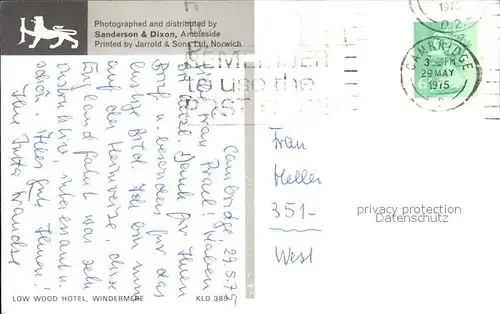 Photographed and distributed by
Sanderson & Dixon, Ambleside
Printed by Jarrold & Sons Ltd, Norwich
1975
REMEMBER
to use the
POST CODE
CAMBRIDGE
3-PM
29 MAY
1975
Cambridge 29.5.75
Frau
Haben
Dank für Ihren
Brief u. besonders für das
lustige Bild. Ich bin nun
auf der Heimreise, diese
Englandfahrt war sehr
interessant u.
schön. Alles gute Ihnen!
Ihre Jutta
Frau
Heller
351-
West
privacy protection
Datenschutz
LOW WOOD HOTEL, WINDERMERE
KLD 389